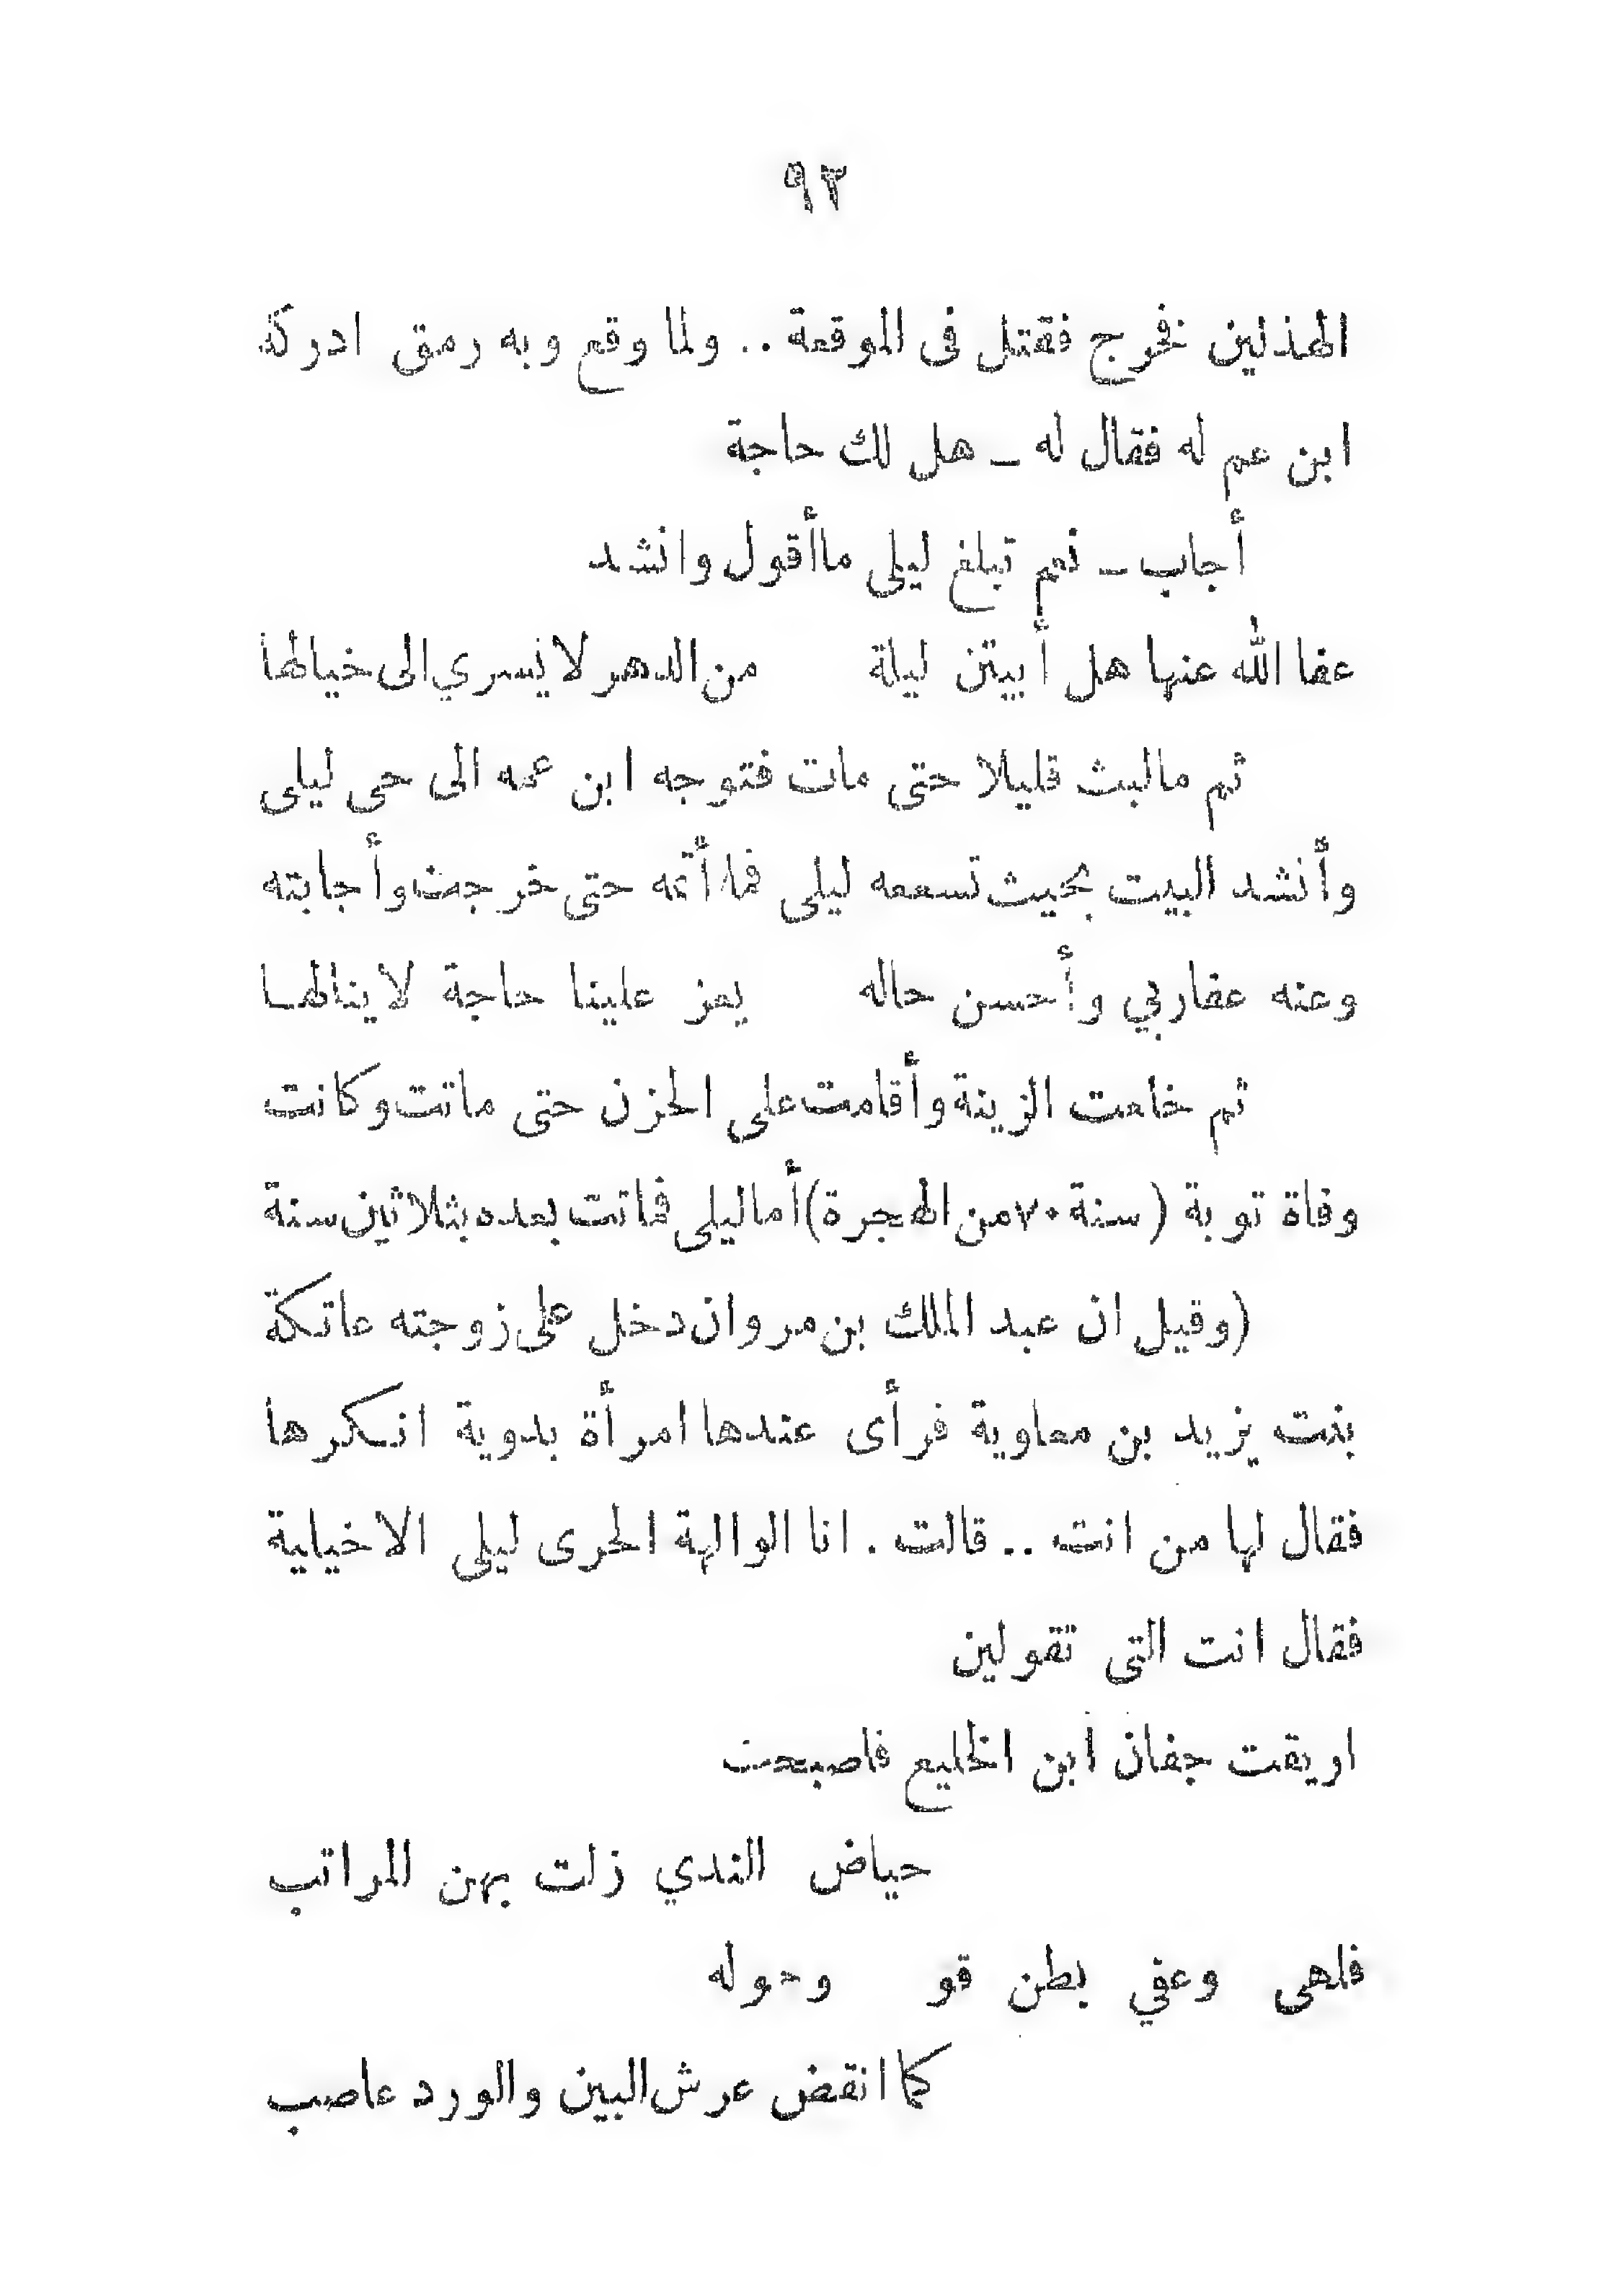 ٩٢
الهذلين فخرج فقتل فى الموقعة .. ولما وقع وبه رمق ادركه
ابن عم له فقال له ــ هل لك حاجة
أجاب ــ نعم تبلغ ليلى ماأقول وانشد
عفا الله عنها هل أبيتن ليلة من الدهر لا يسري الى خيالها
ثم مالبث قليلا حتى مات فتوجه ابن عمه الى حى ليلى
وأنشد البيت بحيث تسمعه ليلى فما أتمه حتى خرجت وأجابته
وعنه عفاربي وأحسن حاله يعز علينا حاجة لاينالهـا
ثم خلعت الزينة وأقامت على الحزن حتى ماتت وكانت
وفاة توبة (سنة ٧٠ من الهجرة) أما ليلى فماتت بعده بثلاثين سنة
(وقيل ان عبد الملك بن مروان دخل على زوجته عاتكة
بنت يزيد بن معاوية فرأى عندها امرأة بدوية انـكرها
فقال لها من انت .. قالت . انا الوالهة الحرى ليلى الاخيلية
فقال انت التى تقولين
اريقت جفان ابن الخليع فاصبحت
حياض الندي زلت بهن المراتب
فلهى وعفي بطن قو وحوله
كما انقض عرش البين والورد عاصب